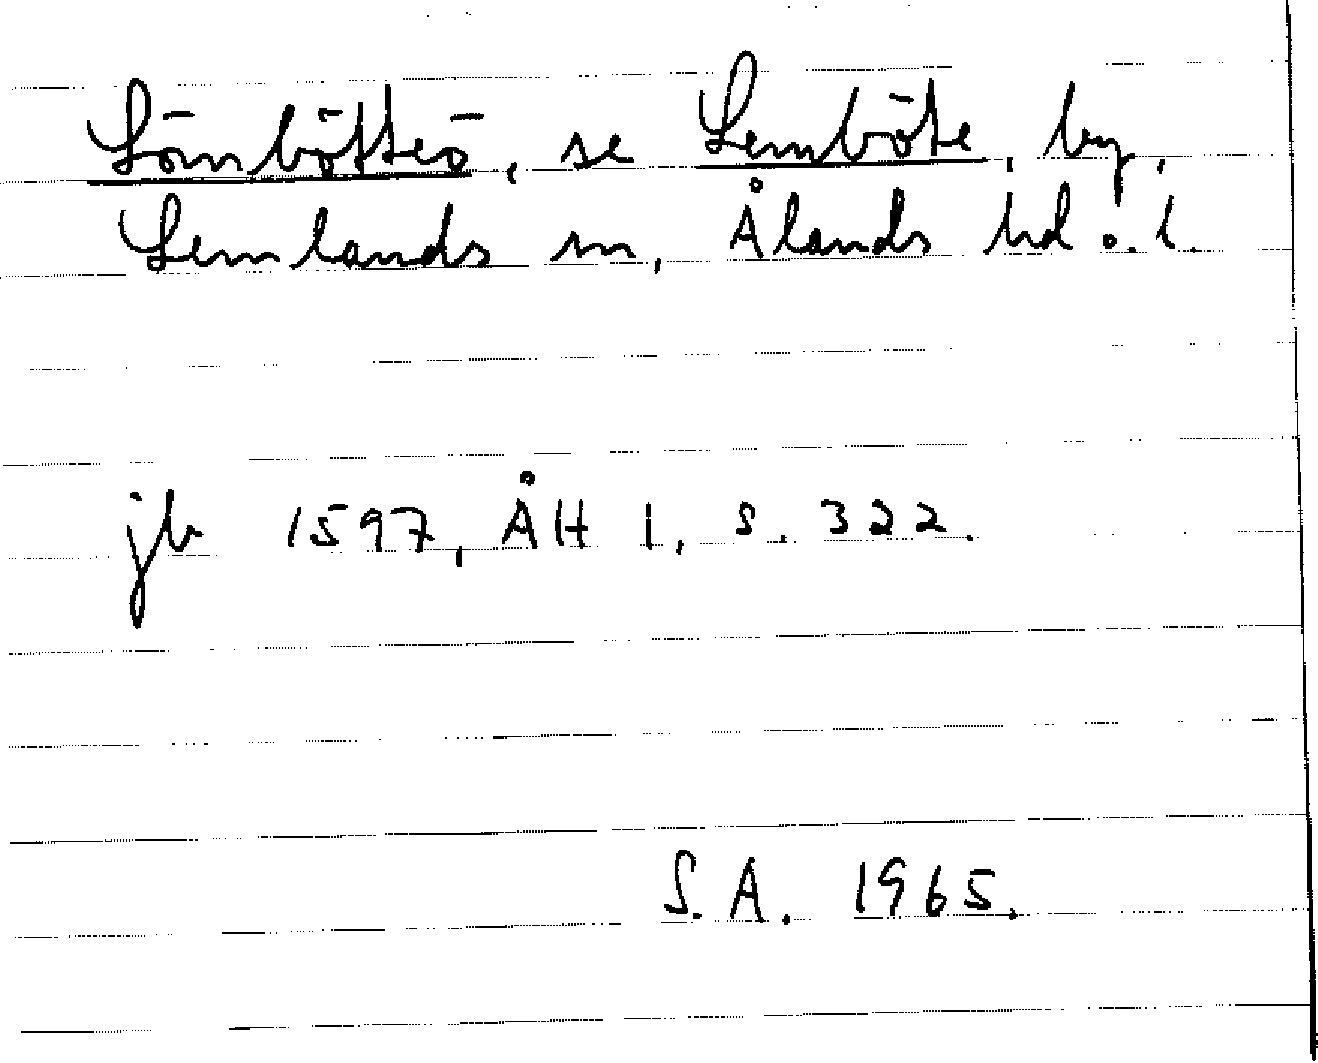 Lömbötteö, se Lemböte, by,
Lemlands sn, Ålands hd o. l.
jb 1597, ÅH 1, s. 322.
S.A. 1965.